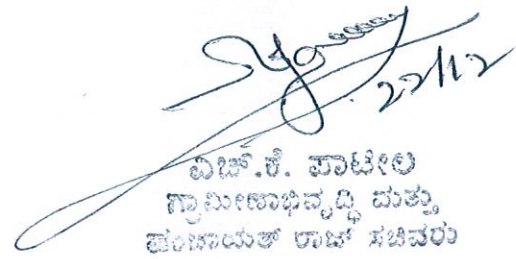 22/12
ಎಚ್.ಕೆ. ಪಾಟೀಲ
ಗ್ರಾಮೀಣಾಭಿವೃದ್ಧಿ ಮತ್ತು
ಪಂಚಾಯತ್ ರಾಜ್ ಸಚಿವರು